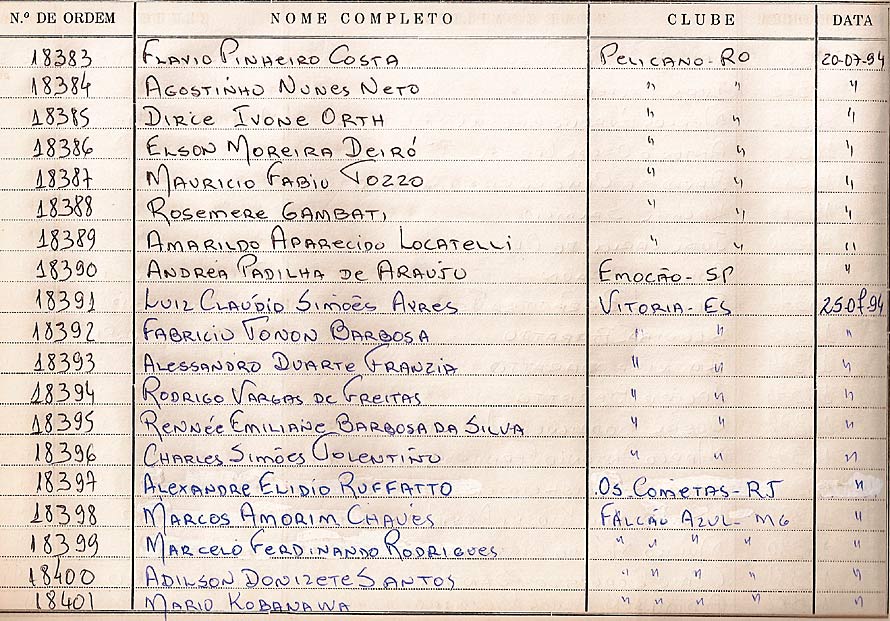 N.º DE ORDEM NOME COMPLETO CLUBE DATA
18383 FLAVIO PINHEIRO COSTA PELICANO-RO 20-07-94
18384 AGOSTINHO NUNES NETO " " "
18385 DIRCE IVONE ORTH " " "
18386 ELSON MOREIRA DEIRÓ " " "
18387 MAURICIO FABIO TOZZO " " "
18388 ROSEMERE GAMBATI " " "
18389 AMARILDO APARECIDO LOCATELLI " " "
18390 ANDREA PADILHA DE ARAUJO EMOCÃO-SP "
18391 LUIZ CLAUDIO SIMÕES AYRES VITORIA-ES 25.07.94
18392 FABRICIO TONON BARBOSA " " "
18393 ALESSANDRO DUARTE FRANZIA " " "
18394 RODRIGO VARGAS DE FREITAS " " "
18395 RENNÉE EMILIANE BARBOSA DA SILVA " " "
18396 CHARLES SIMÕES TOLENTINO " " "
18397 ALEXANDRE ELIDIO RUFFATTO OS COMETAS-RJ "
18398 MARCOS AMORIM CHAVES FALCÃO AZUL-MG "
18399 MARCELO FERDINANDO RODRIGUES " " " " "
18400 ADILSON DONIZETE SANTOS " " " " "
18401 MARIO KOBANAWA " " " " "